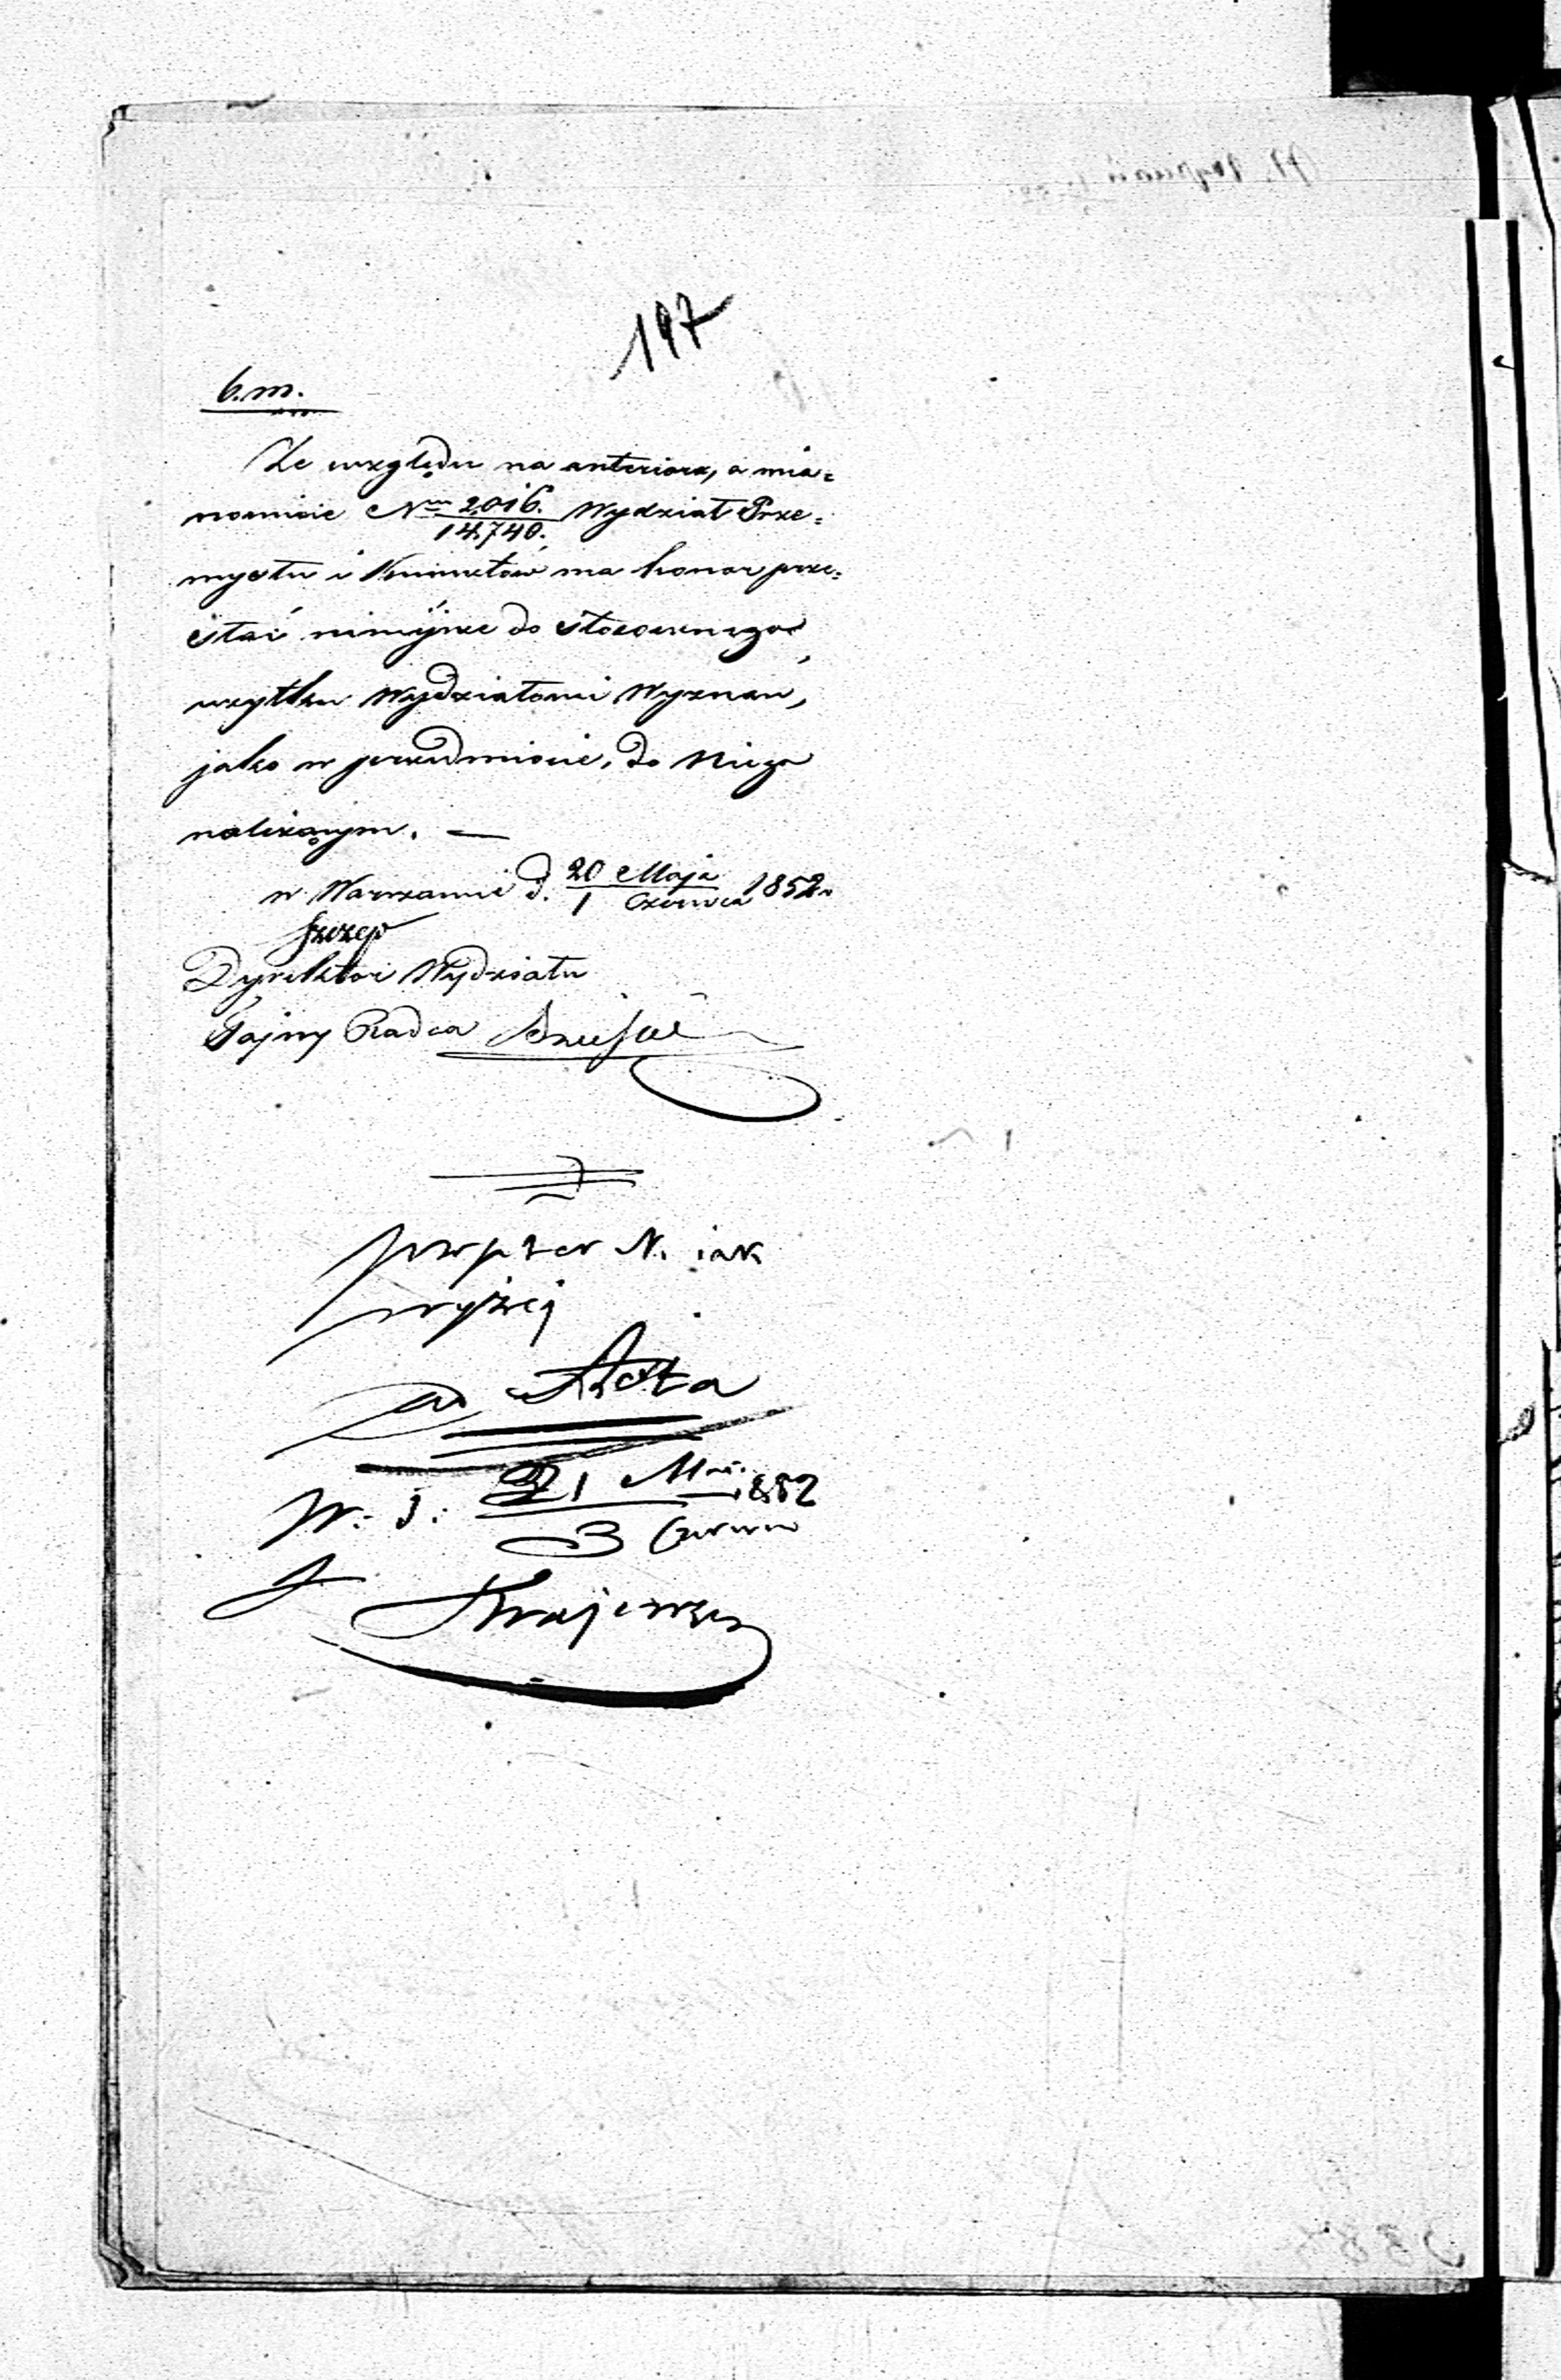 197
b. m.
Ze względu na anteriora, a mia=
nowicie Nrm 2016./14,740. Wydział Prze=
mysłu i Kunsztów ma honor prze=
słać niniejsze do stosownego
użytku Wydziałowi Wyznań,
jako w przedmiocie, do Niego
należącym. —
w Warszawie d. 20 Maja/1 Czerwca 1852 r.
Dyrektor Wydziału
Tajny Radca
N. iak
wyżej
ad Acta
W. d. 21 Maja/3 Czerwca 1852
Krajewski